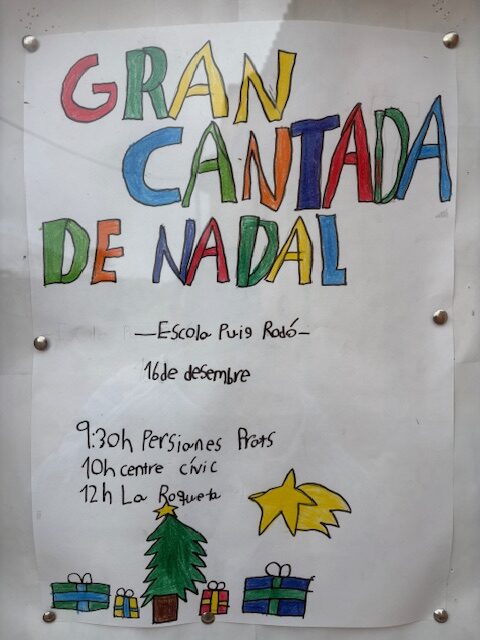 GRAN
CANTADA
DE NADAL
—Escola Puig Rodó—
16 de desembre
9:30h Persianes Prats
10h centre cívic
12h La Roqueta